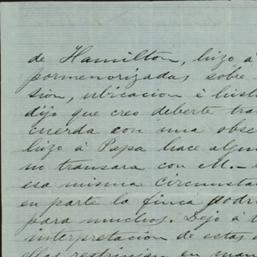 de Hamilton, hizo á
pormenorizadas sobre
sion, ubicacion é hist
dijo que creo deberte tra
cuerda con una obse
hizo á Papa hace algun
no transara con M.
esa misma Circunsta
en parte la finca podr
para muchos. Dejo á t
interpretacion de estas